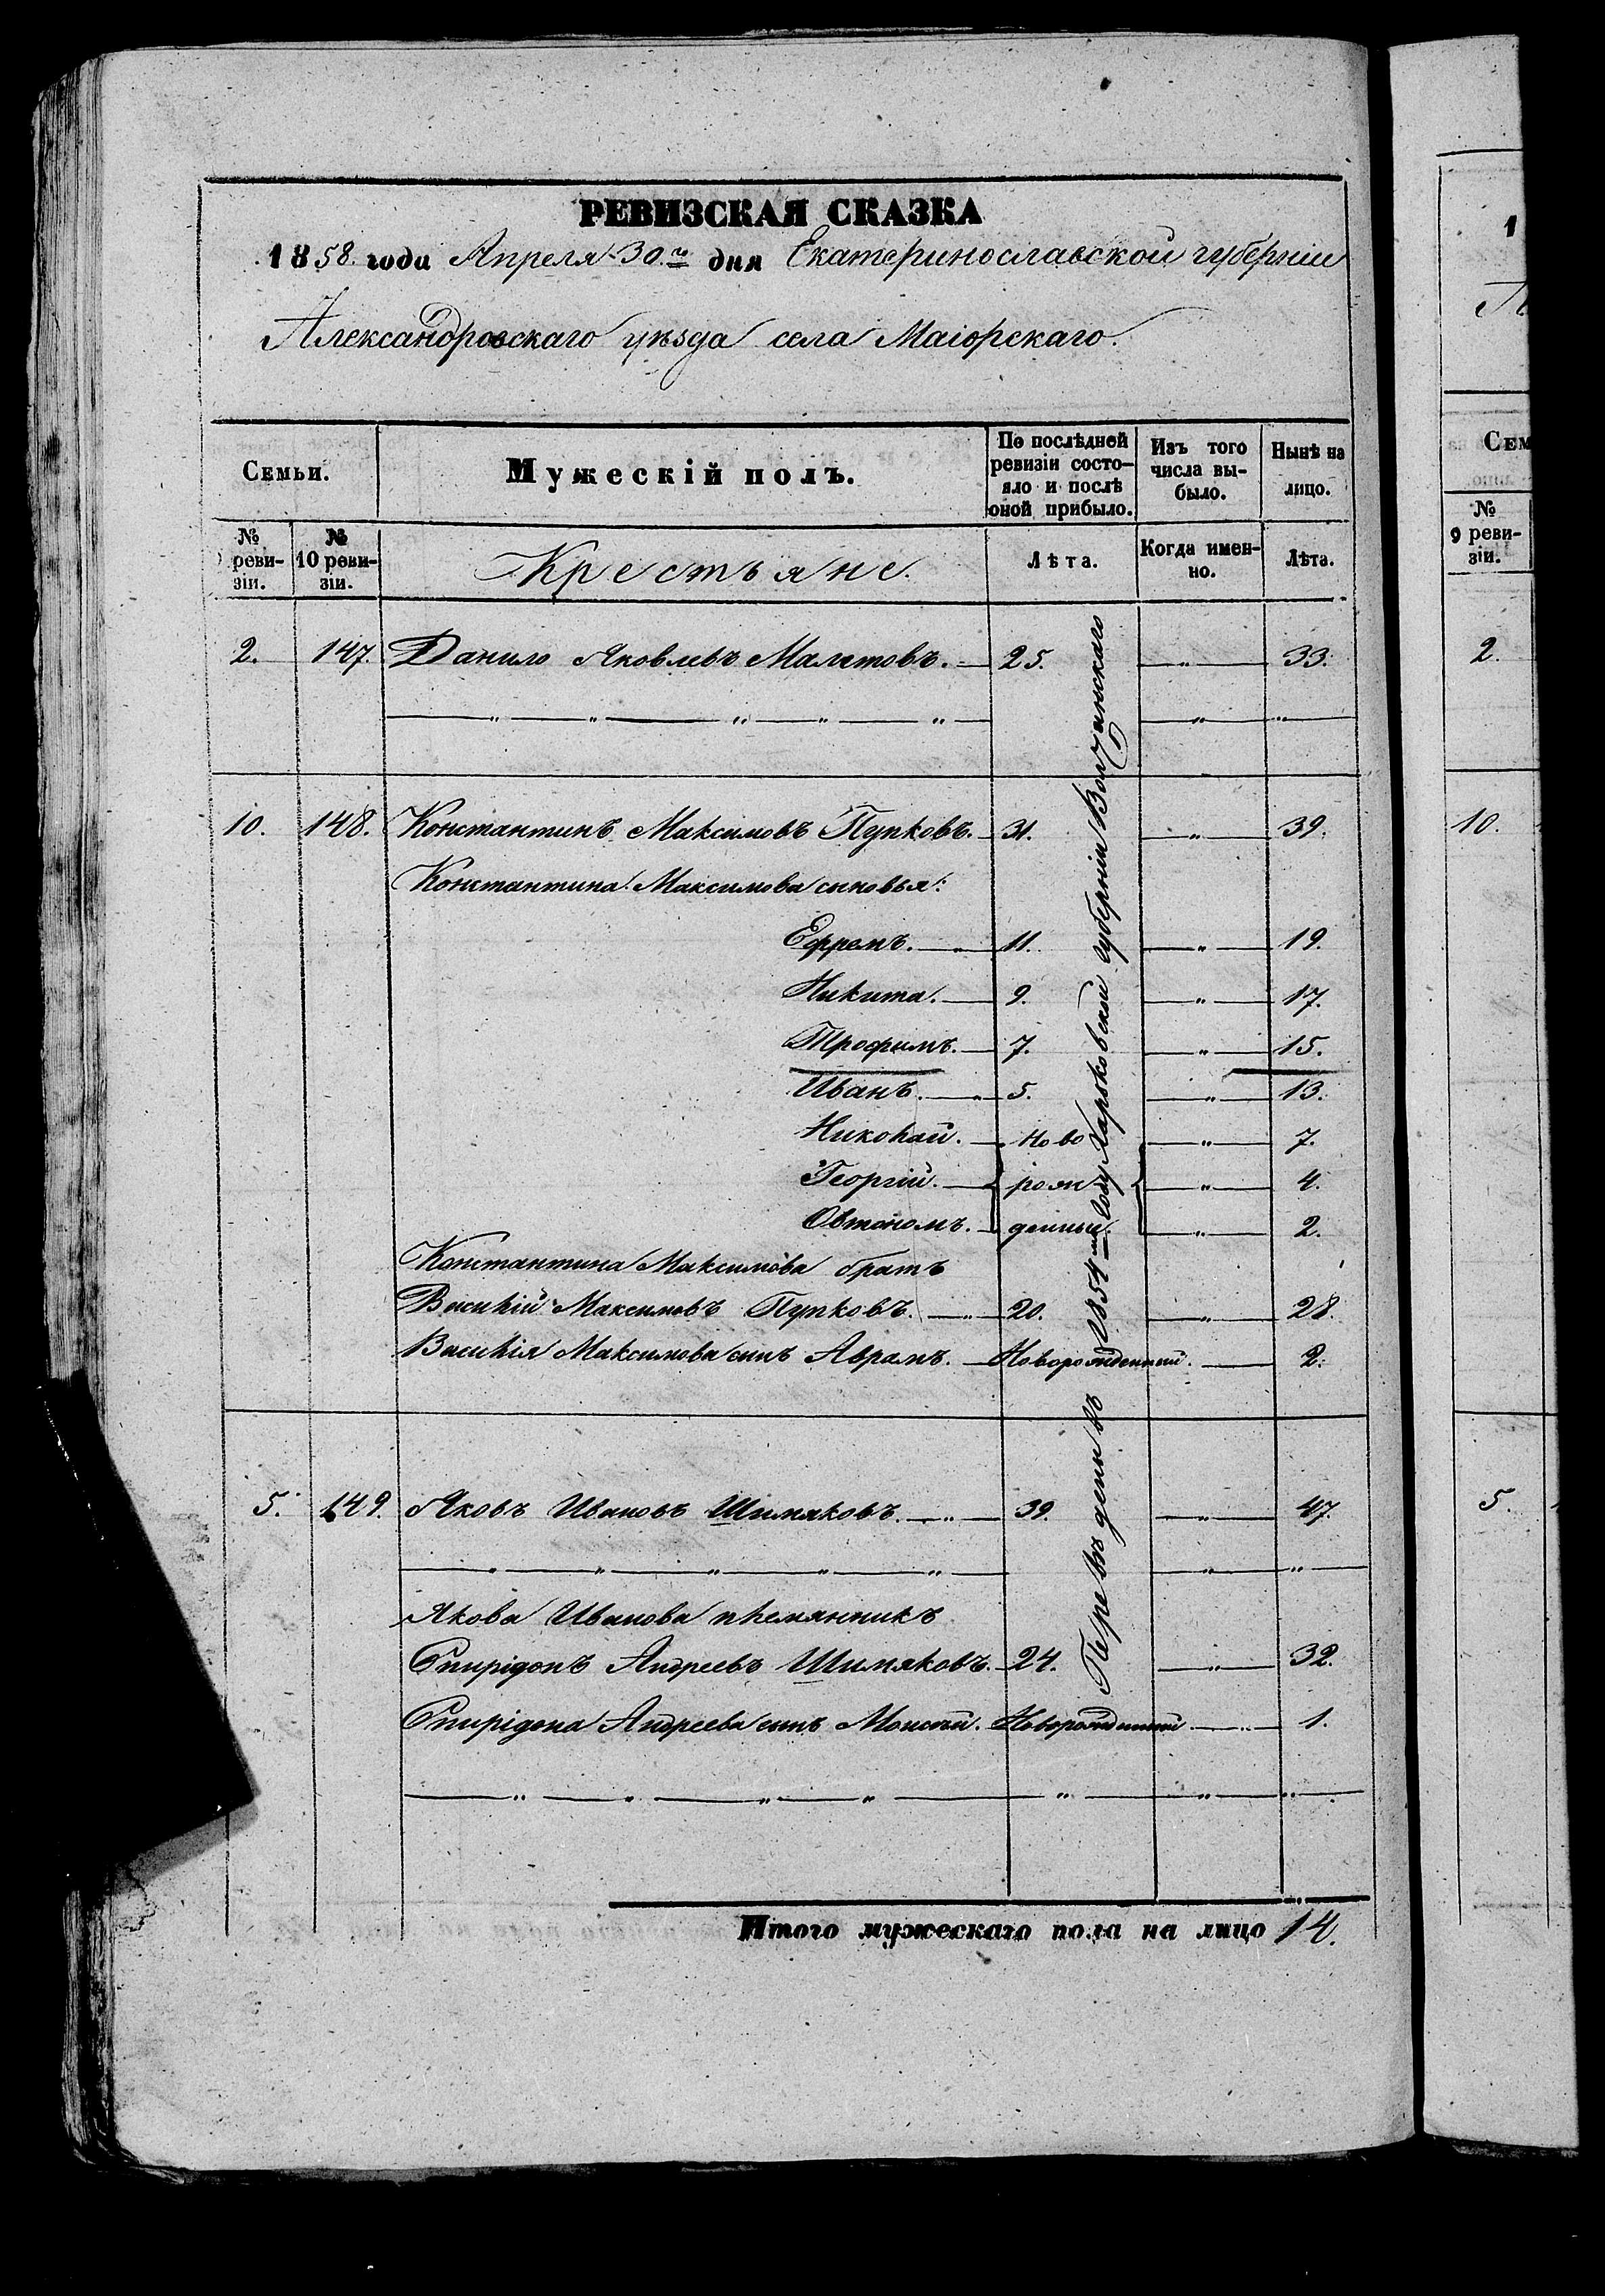 РЕВИЗСКАЯ СКАЗКА
1858. года Апреля 30.го дня Екатеринославской губерніи
Александровскаго уѣзда села Маіорскаго.
Семьи.
Мужескій полъ.
По послѣдней ревизіи состо-яло и послѣ оной прибыло.
Изъ того числа вы-было.
Нынѣ на лицо.
№ реви-зіи.
№ 10 реви-зіи.
Крестьяне.
Лѣта.
Когда имен-но.
Лѣта.
2. 147. Данило Яковлевъ Малетовъ. 25. 33.
10. 148. Константинъ Максимовъ Пупковъ. 31. 39.
Константина Максимова сыновья:
Ефремъ. 11. 19.
Никита. 9. 17.
Трофимъ. 7. 15.
Иванъ. 5. 13.
Николай. ново 7.
Георгій. рож 4.
Овтономъ. денные. 2.
Константина Максимова братъ
Василій Максимовъ Пупковъ. 20. 28.
Василія Максимова сынъ Аврамъ. Новорожденный. 2.
5. 149. Яковъ Ивановъ Шимяковъ. 39. 47.
Якова Иванова племянникъ
Спирідонъ Андреевъ Шимяковъ. 24. 32.
Спирідона Андреева сынъ Моисѣй. Новорожденный 1.
Перевѣдены въ 1854 году Харьковской губерніи Волчанскаго
Итого мужескаго пола на лицо 14.
1
Сем
№
9 реви-
зіи.
2.
10.
5.